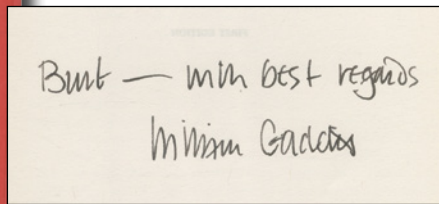 Burt — with best regards
William Gaddis